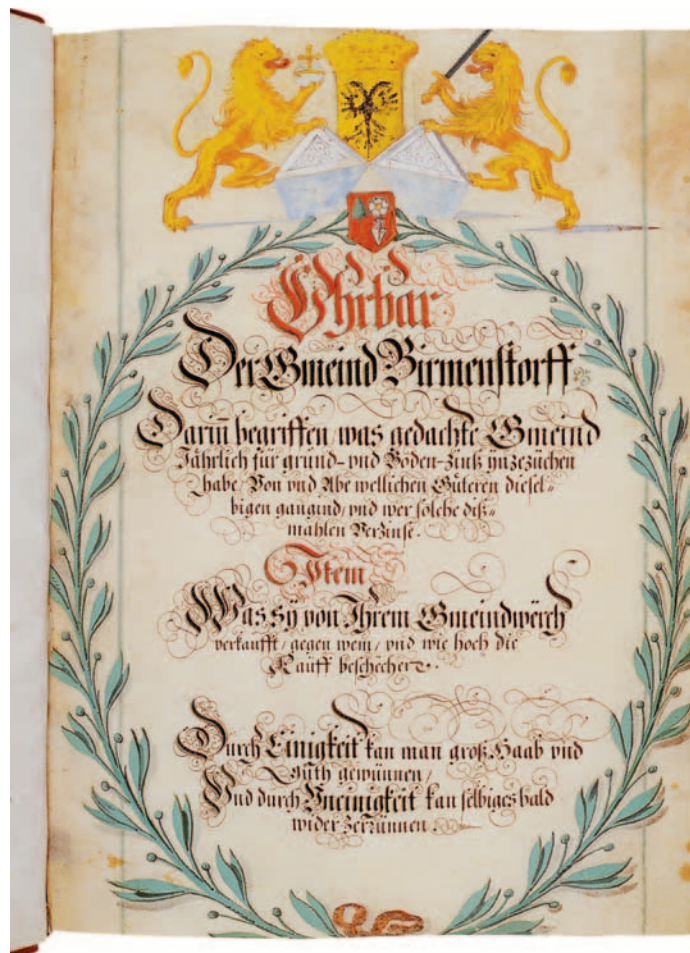 Vhrbar
Der Gmeind Birmenstorff
Dariñ begriffen, was gedachte Gmeind
Jährlich für grund- vnd Boden-Zinß ynzezüchen
habe, Von vnd Abe wellichen Güteren diesel-
bigen gangind, vnd wer solche diß-
mahlen Verzinse.
Item
Was sÿ von Ihrem Gmeindwërch
verkaufft, gegen wem, vnd wie hoch die
Kaüff beschechen.
Durch Einigkeit kan man groß Haab vnd
Guth gewünnen,
Vnd durch Vneinigkeit kan selbiges bald
wider Zerrünnen.